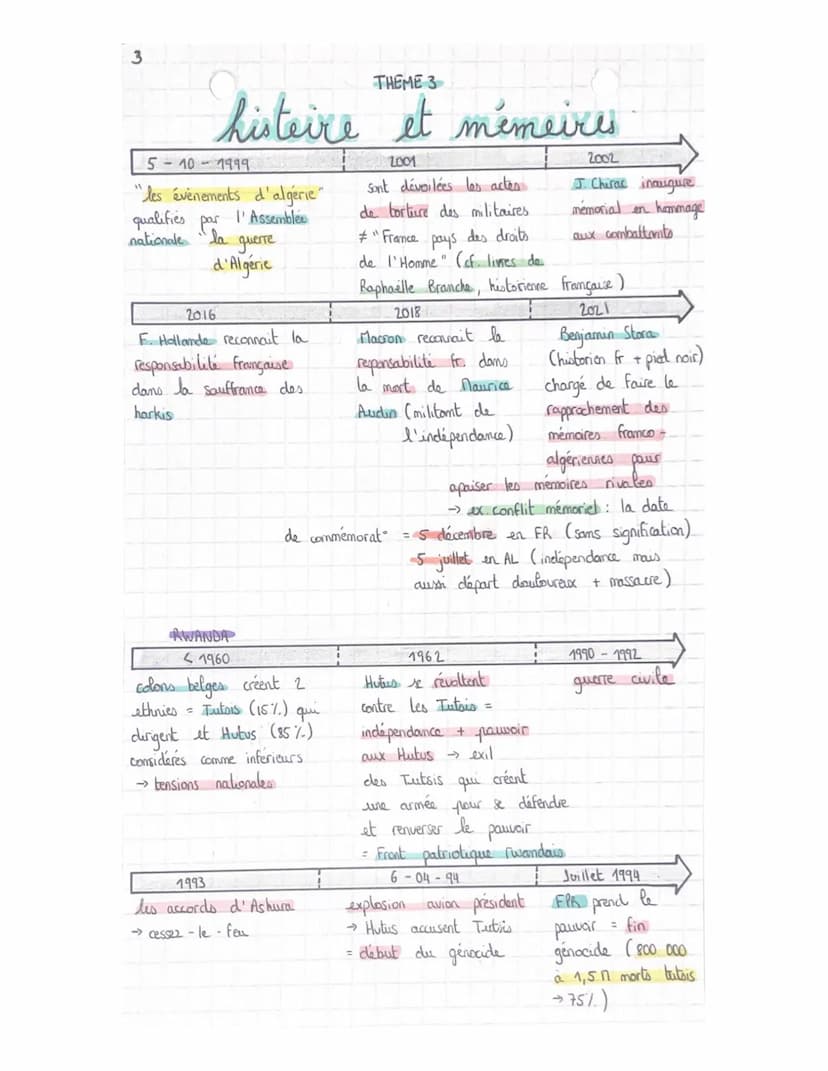 3
THEME 3
histoire et mémoires
5 - 10 - 1999
2001
2002
"les évènements d'algérie"
qualifiés par l'Assemblée
nationale "la guerre
d'Algérie
sont dévoilées les actes
de torture des militaires
≠ "France pays des droits
de l'Homme" (cf. livres de
Raphaëlle Branche, historienne française)
J. Chirac inaugure
mémorial en hommage
aux combattants
2016
2018
2021
F. Hollande reconnait la
responsabilité française
dans la souffrance des
harkis
Macron reconnait la
reponsabilité fr. dans
la mort de Maurice
Audin (militant de
l'indépendance)
Benjamin Stora
(historien fr + pied noir)
chargé de faire le
rapprochement des
mémoires franco-
algériennes pour
apaiser les mémoires rivales
→ ex. conflit mémoriel : la date
de commémorat° = 5 décembre en FR (sans signification)
5 juillet en AL (indépendance mais
aussi départ douloureux + massacre)
RWANDA
< 1960
1962
1990 - 1992
colons belges créent 2
ethnies = Tutsis (15%) qui
dirigent et Hutus (85%)
considérés comme inférieurs
→ tensions nationales
Hutus se révoltent
contre les Tutsis =
indépendance + pouvoir
aux Hutus → exil
des Tutsis qui créent
une armée pour se défendre
et renverser le pouvoir
= Front patriotique rwandais
guerre civile
1993
6 - 04 - 94
Juillet 1994
les accords d'Ashura
→ cessez-le-feu
explosion avion président
→ Hutus accusent Tutsis
= début du génocide
FPR prend le
pouvoir = fin
génocide (800 000
à 1,5 M morts tutsis
→ 75%)